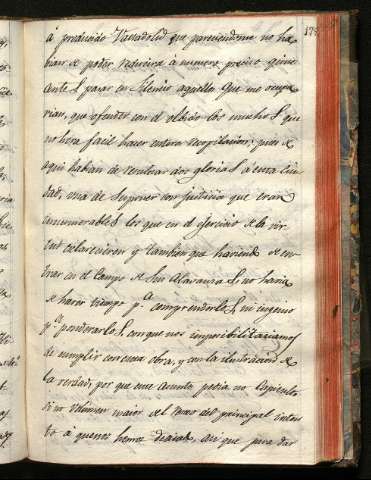 173
á producido Valladolid que pareciendome no ha
bian de poder reducirse á numero preciso quise
antes pasar en silencio aquello que me ocurr
rian, que ofender con el olbido los muchos que
no sera facil hacer entera recopilacion; pues de
aqui habian de resultar dos glorias á esta Ciu
dad, una de suponer con justicia que eran
innumerables los que en el exercicio de la vir
tud esclarecieron y tambien que haviendo de en
trar en el Campo de sus Alavanzas, no havia
de haver tiempo pª comprenderlos, ni ingenio
pª ponderarlos, con que nos imposibilitariamos
de cumplir con esta obra, y con la ilustracion de
la verdad, por que este asunto pedia no Capitulo
si no volumen maior del ramo del principal inten
to á quenos hemos dedicado, asi que para dar